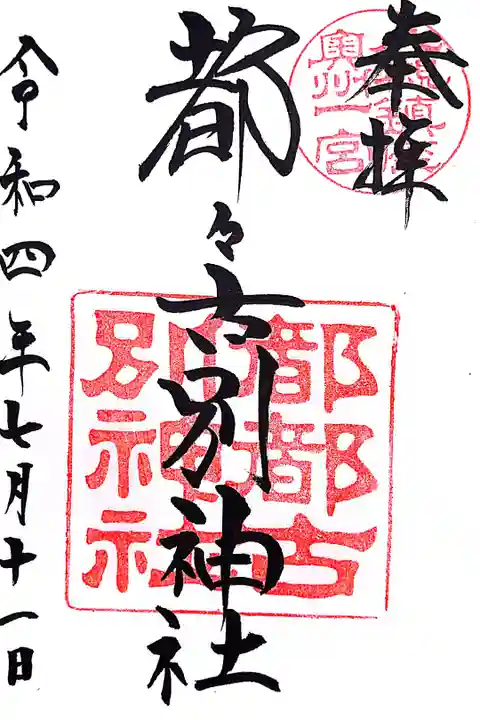 奉拝
奥州一宮
都々古別神社
都都古別神社
令和四年七月十一日